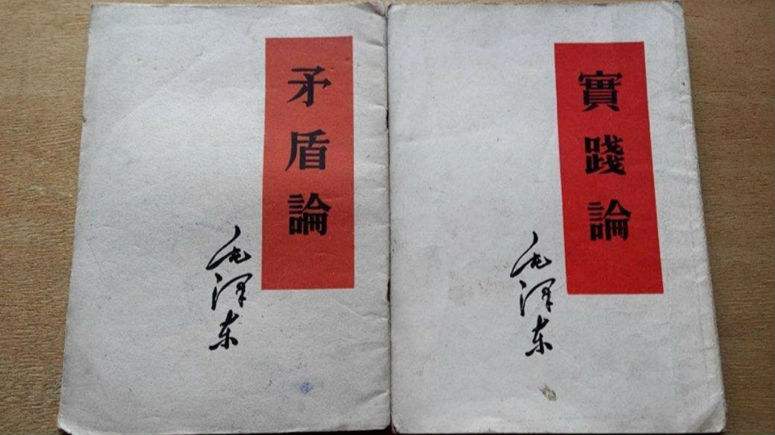 矛盾論
毛泽东
實踐論
毛泽东